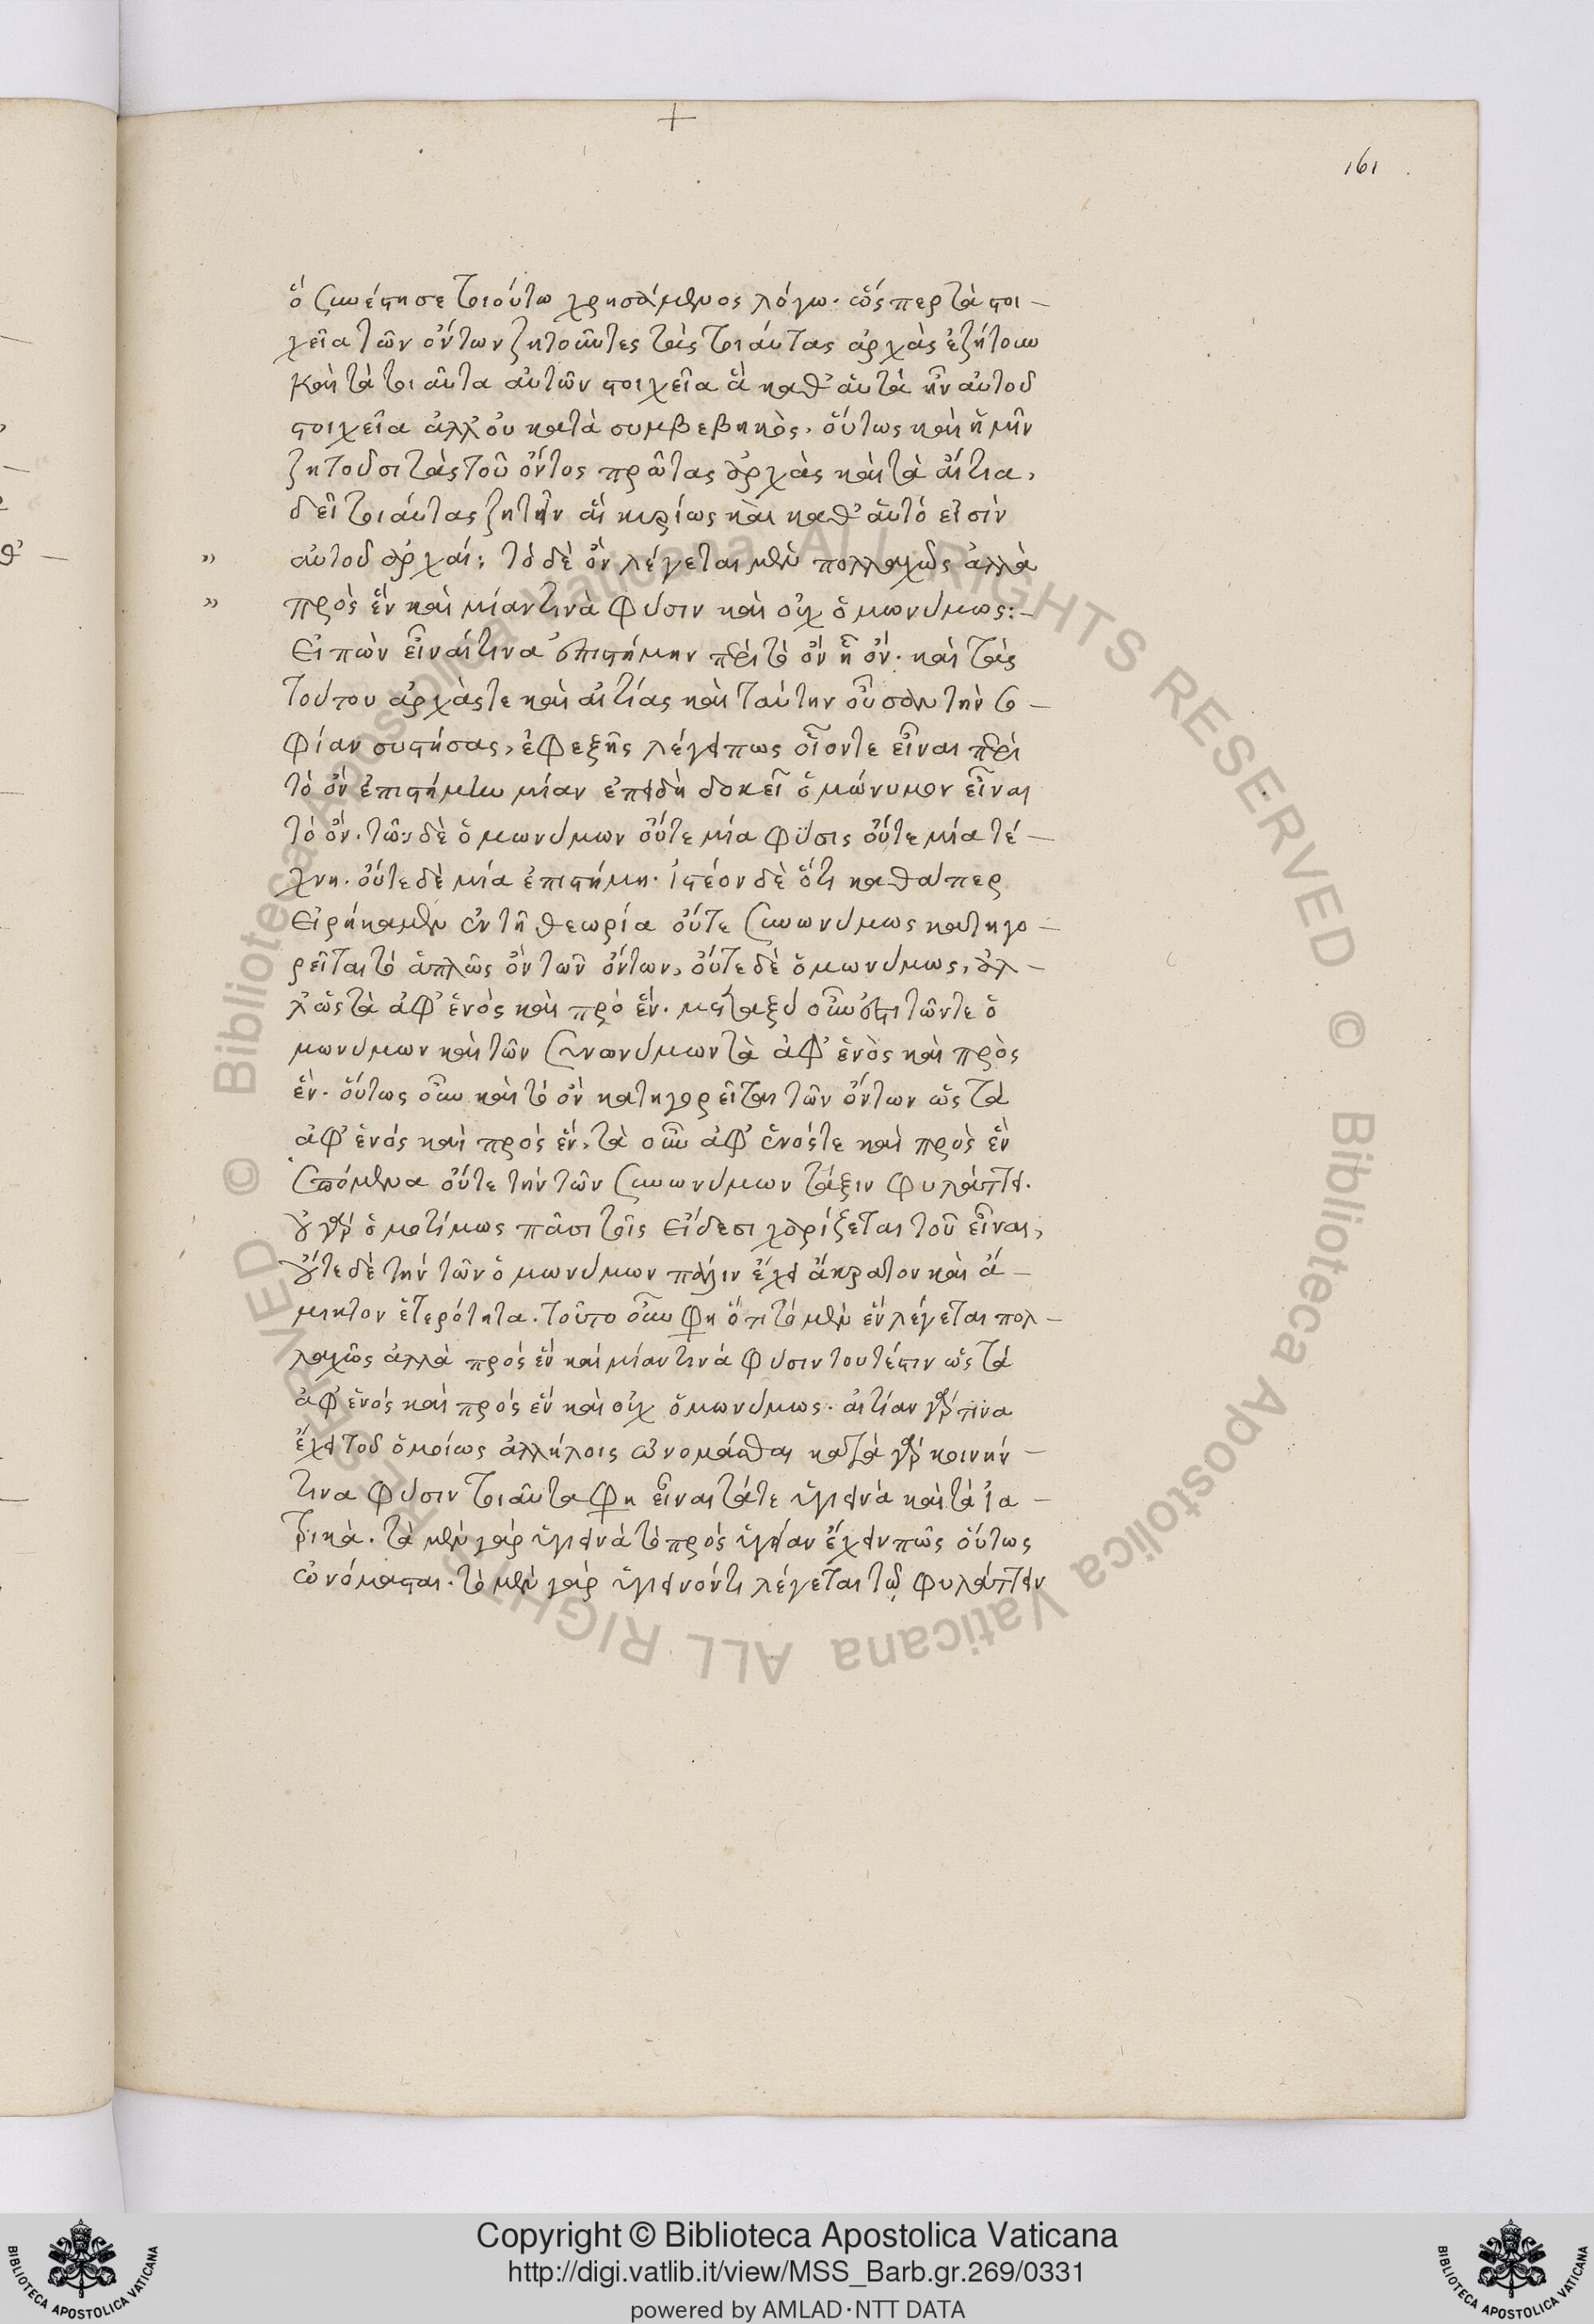 161
ὅ συνέστησε τοιούτω χρησάμενος λόγω. ὥσπερ τὰ στοι-
χεῖα τῶν ὄντων ζητοῦντες τὰς τοιαύτας ἀρχὰς ἐζήτουν
καὶ τὰ τοιαῦτα αὐτῶν στοιχεῖα ἃ καθ' αὑτὰ ἦν αὐτοῦ
στοιχεῖα ἀλλ' οὐ κατὰ συμβεβηκὸς, οὕτως καὶ ἡμῖν
ζητοῦσι τὰς τοῦ ὄντος πρῶτας ἀρχὰς καὶ τὰ αἴτια,
δεῖ τοιαύτας ζητεῖν αἳ κυρίως καὶ καθ' αὑτό εἰσὶν
» αὐτοῦ ἀρχαί: τὸ δὲ ὂν λέγεται μὲν πολλαχῶς ἀλλὰ
» πρὸς ἓν καὶ μίαν τινὰ φύσιν καὶ οὐχ ὁμωνύμως:-
Εἰπὼν εἶναί τινα ἐπιστήμην περὶ τὸ ὂν ᾗ ὄν. καὶ τὰς
τούτου ἀρχάς τε καὶ αἰτίας καὶ ταύτην οὖσαν τὴν σο-
φίαν συστήσας, ἐφεξῆς λέγει πως οἷόντε εἶναι περὶ
τὸ ὂν ἐπιστήμην μίαν ἐπειδὴ δοκεῖ ὁμώνυμον εἶναι
τὸ ὄν. τῶν δὲ ὁμωνύμων οὔτε μία φύσις οὔτε μία τέ-
χνη. οὔτε δὲ μία ἐπιστήμη. ἰστέον δὲ ὅτι καθάπερ
εἰρήκαμεν ἐν τῆ θεωρία οὔτε συνωνύμως κατηγο-
ρεῖται τὸ ἁπλῶς ὂν τῶν ὄντων, οὔτε δὲ ὁμωνύμως, ἀλ-
λ' ὡς τὰ ἀφ' ἑνός καὶ πρὸ ἕν. μεταξύ οὖν ἐστι τῶν τε ὁ
μωνύμων καὶ τῶν συνωνύμων τὰ ἀφ' ἑνὸς καὶ πρὸς
ἕν. οὕτως οὖν καὶ τὸ ὂν κατηγορεῖται τῶν ὄντων ὡς τὰ
ἀφ' ἑνός καὶ πρός ἕν, τὰ οὖν ἀφ' ἑνός τε καὶ πρὸς ἓν
λεγόμενα οὔτε τήν τῶν συνωνύμων τάξιν φυλάττει.
οὐ γὰρ ὁμοτίμως πᾶσι τοῖς εἴδεσι χωρίζεται τοῦ εἶναι,
οὔτε δὲ τήν τῶν ὁμωνύμων πάλιν ἔχει ἄκρατον καὶ ἄ-
μικτον ἑτερότητα. τοῦτο οὖν φη ὅτι τὸ μὲν ἓν λέγεται πολ-
λαχῶς ἀλλὰ πρός ἓν καί μίαν τινά φύσιν τουτέστιν ὡς τά
ἀφ' ἑνός καὶ πρός ἓν καὶ οὐχ ὁμωνύμως. αἰτίαν γάρ τινα
ἔχει τοῦ ὁμοίως ἀλλήλοις ὠνομάσθαι κατὰ γάρ κοινήν-
τινα φύσιν τοιαῦτα φη εἶναι τά τε ὑγιεινὰ καὶ τὰ ἰα-
τρικά. τὰ μὲν γάρ ὑγιεινὰ τὸ πρός ὑγείαν ἔχειν πῶς οὕτως
ὠνόμασται. τὸ μὲν γάρ ὑγιεινόν τι λέγεται τῷ φυλάττειν